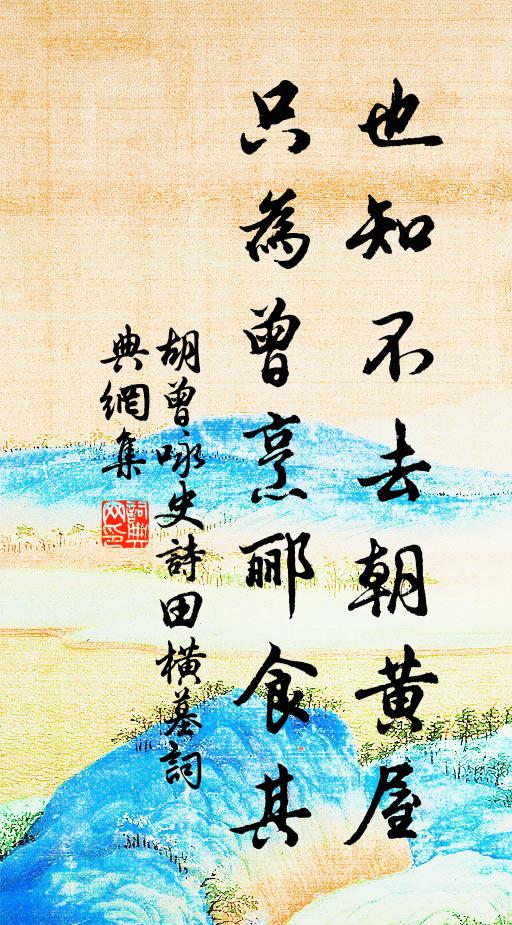 也知不去朝黄屋
只為曾烹酈食其
胡曾咏史詩田橫墓詞
典網集
詞典
网印